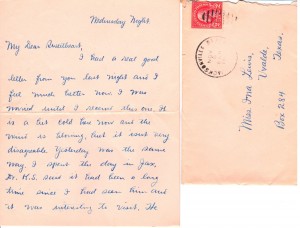 Wednesday Night.
My Dear Sweetheart,
I had a real good
letter from you last night and I
feel much better now. I was
worried until I received this one. It
is a bit cold here now and the
wind is blowing, but it isn't very
disagreeable. Yesterday was the same
way. I spent the day in Jax.
Dr. K.S. said it had been a long
time since I had seen him and
it was interesting to visit. He
JACKSONVILLE
Miss Ina Lewis,
Uvalde,
Texas.
Box 284